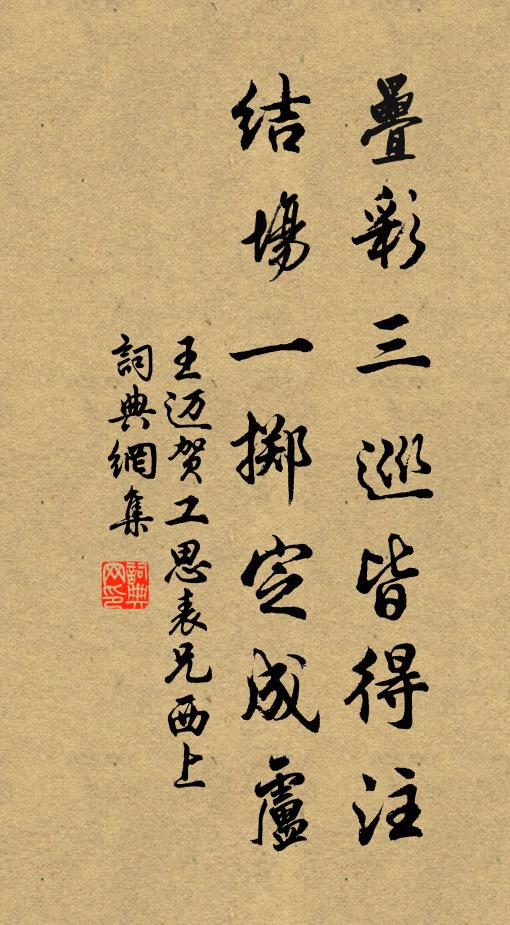 疊彩三巡皆得注
結場一擲定成盧
王迈贺工思表兄西上
詞典網集
詞典
网印